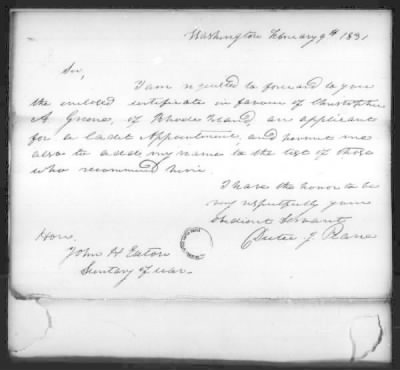 Washington February 9th 1831
Sir,
I am requested to forward to you
the enclosed certificate in favour of Christopher
A Greene, of Rhode Island an applicant
for a Cadet Appointment, and permit me
also to add my name to the list of those
who recommend him.
I have the honor to be
very respectfully your
obedient Servant
Dutee J. Pearce
Hon.
John H Eaton
Secretary of War